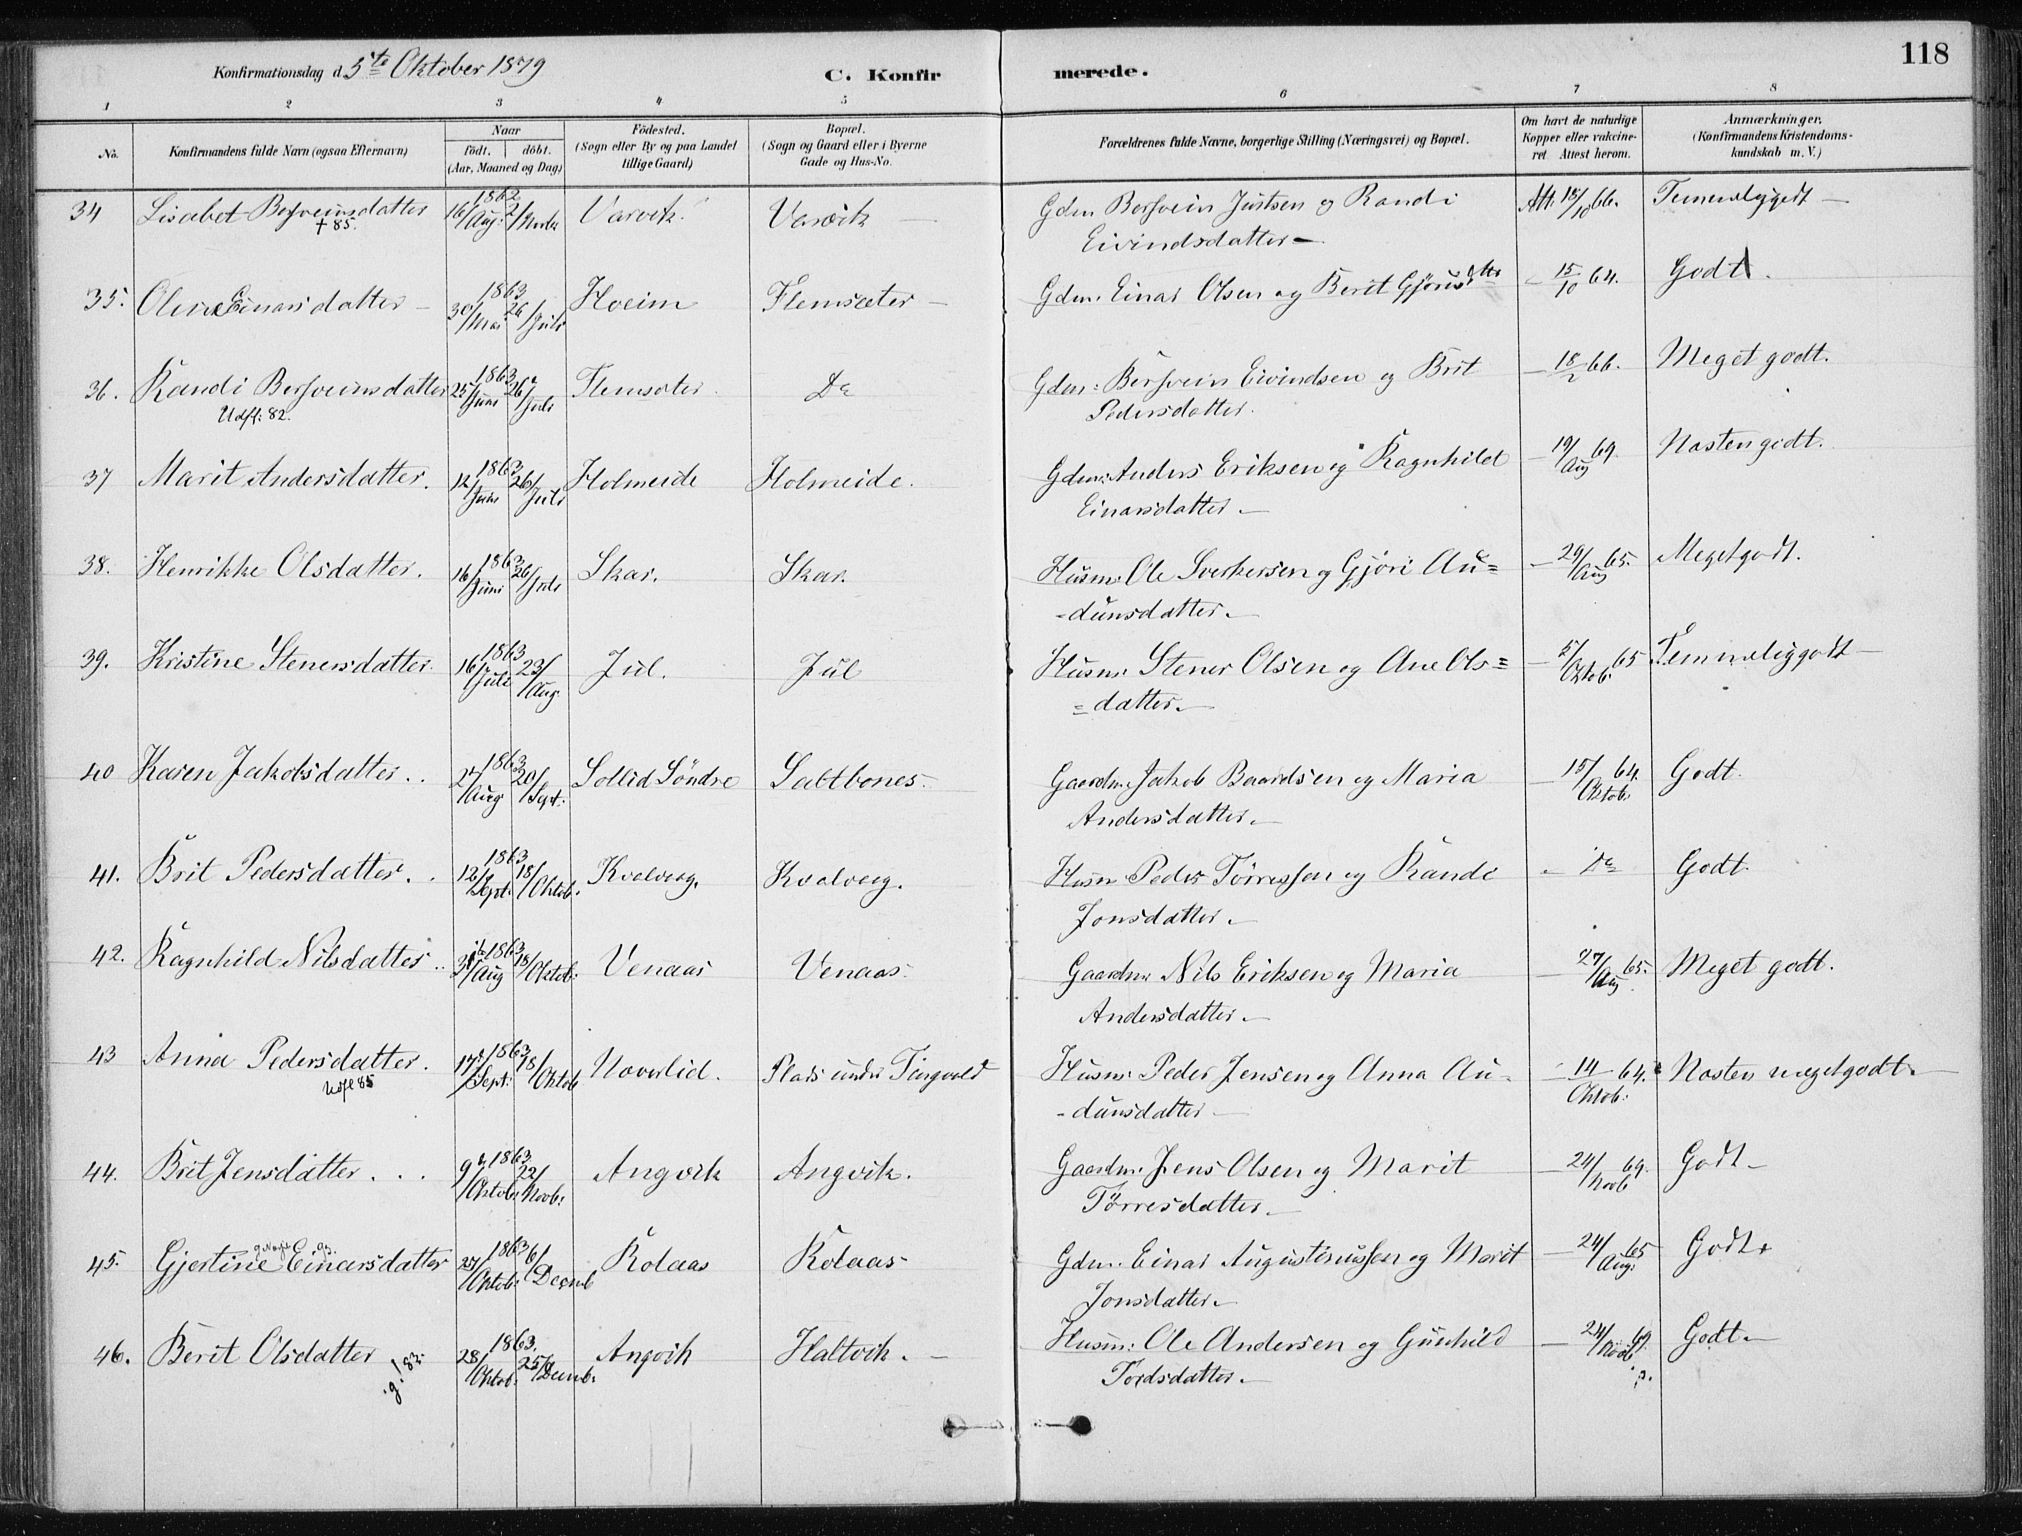 118
Konfirmationsdag d. 5te Oktober 1879
C. Konfirmerede.
1 2 3 4 5 6 7 8
No. | Konfirmandens fulde Navn (ogsaa Efternavn) | Naar Födt. döbt. (Aar, Maaned og Dag) | Födested. (Sogn eller By og paa Landet tillige Gaard) | Bopæl. (Sogn og Gaard eller i Byerne Gade og Hus-No. | Forældrenes fulde Navne, borgerlige Stilling (Næringsvei) og Bopæl. | Om havt de naturlige Kopper eller vakcineret Attest herom. | Anmærkninger. (Konfirmandens Kristendomskundskab m. V.)
34 Lisabet Bersveinsdatter 1862 16/Aug. Varvik. Varvik — Gdm. Bersvein Justsen og Randi Att. 18/10 66. Temmeliggodt —
+ 85. Eivindsdatter —
35. Oline Einarsdatter — 1863 30/Mai 26/Juli Hoeim Flemsæter — Gdm. Einar Olsen og Berit Gjørisdtr — 15/10 64. Godt.
36. Randi Bersveinsdatter 1863 25/Juni 26/Juli Flemsæter. Do Gdm: Bersvein Eivindsen og Brit — 18/2 66. Meget godt.
Udfl: 82. Pedersdatter.
37 Marit Andersdatter. 1863 12/Juni 26/Juli Holmeide Holmeide. Gdm: Anders Eriksen og Ragnhild — 19/Aug 69. Næsten godt.
Einarsdatter —
38. Henrikke Olsdatter. 1863 16/Juni 26/Juli Skar. Skar. Husm: Ole Sverkersen og Gjöri Au= — 29/Aug 65. Meget godt.
-dunsdatter. —
39. Kristine Stenersdatter. 1863 16/Juli 23/Aug. Jul. Jul Husm: Stener Olsen og Ane Ols= — 5/Oktob. 65 Temmeliggodt —
=datter. —
40 Karen Jakobsdatter.. 1863 27/Aug 20/Sept. Sollid Söndre Saltbones. Gaardm. Jakob Baardsen og Maria — 15/Oktob. 64. Godt.
Andersdatter. —
41. Brit Pedersdatter.. 1863 12/Sept. 18/Oktob. Kvalvaag. Kvalvaag. Husm Peder Törressen og Randi - Do Godt.
Jonsdatter. —
42. Ragnhild Nilsdatter.. 1863 31/Aug 18/Oktob. Venaas Venaas. Gaardm: Nils Eriksen og Maria — 27/Aug. 65. Meget godt.
Andersdatter. —
43 Anna Pedersdatter. 1863 17/Sept: 18/Oktob Uoverlid. Plads under Tingvold Husm: Peder Jensen og Anna Au- — 14/Oktob: 64. Næsten megetgodt.
Udfl 85 -dunsdatter —
44. Brit Jensdatter... 1863 9/Oktob: 22/Novb: Angvik Angvik. Gaardm. Jens Olsen og Marit — 24/Novb 69. Godt —
Törresdatter. —
45. Gjertine Einarsdatter 1863 27/Oktob: 6/Decmb Rolaas Rolaas Gdm. Einar Augustinussen og Marit — 24/Aug: 65 Godt.
Jonsdatter. —
46. Berit Olsdatter 1863. 28/Oktob: 25/Decmb. Angvik Haltvik. — Husm: Ole Andersen og Gunhild — 24/Novb 69 Godt. —
g! 83. Tordsdatter. —